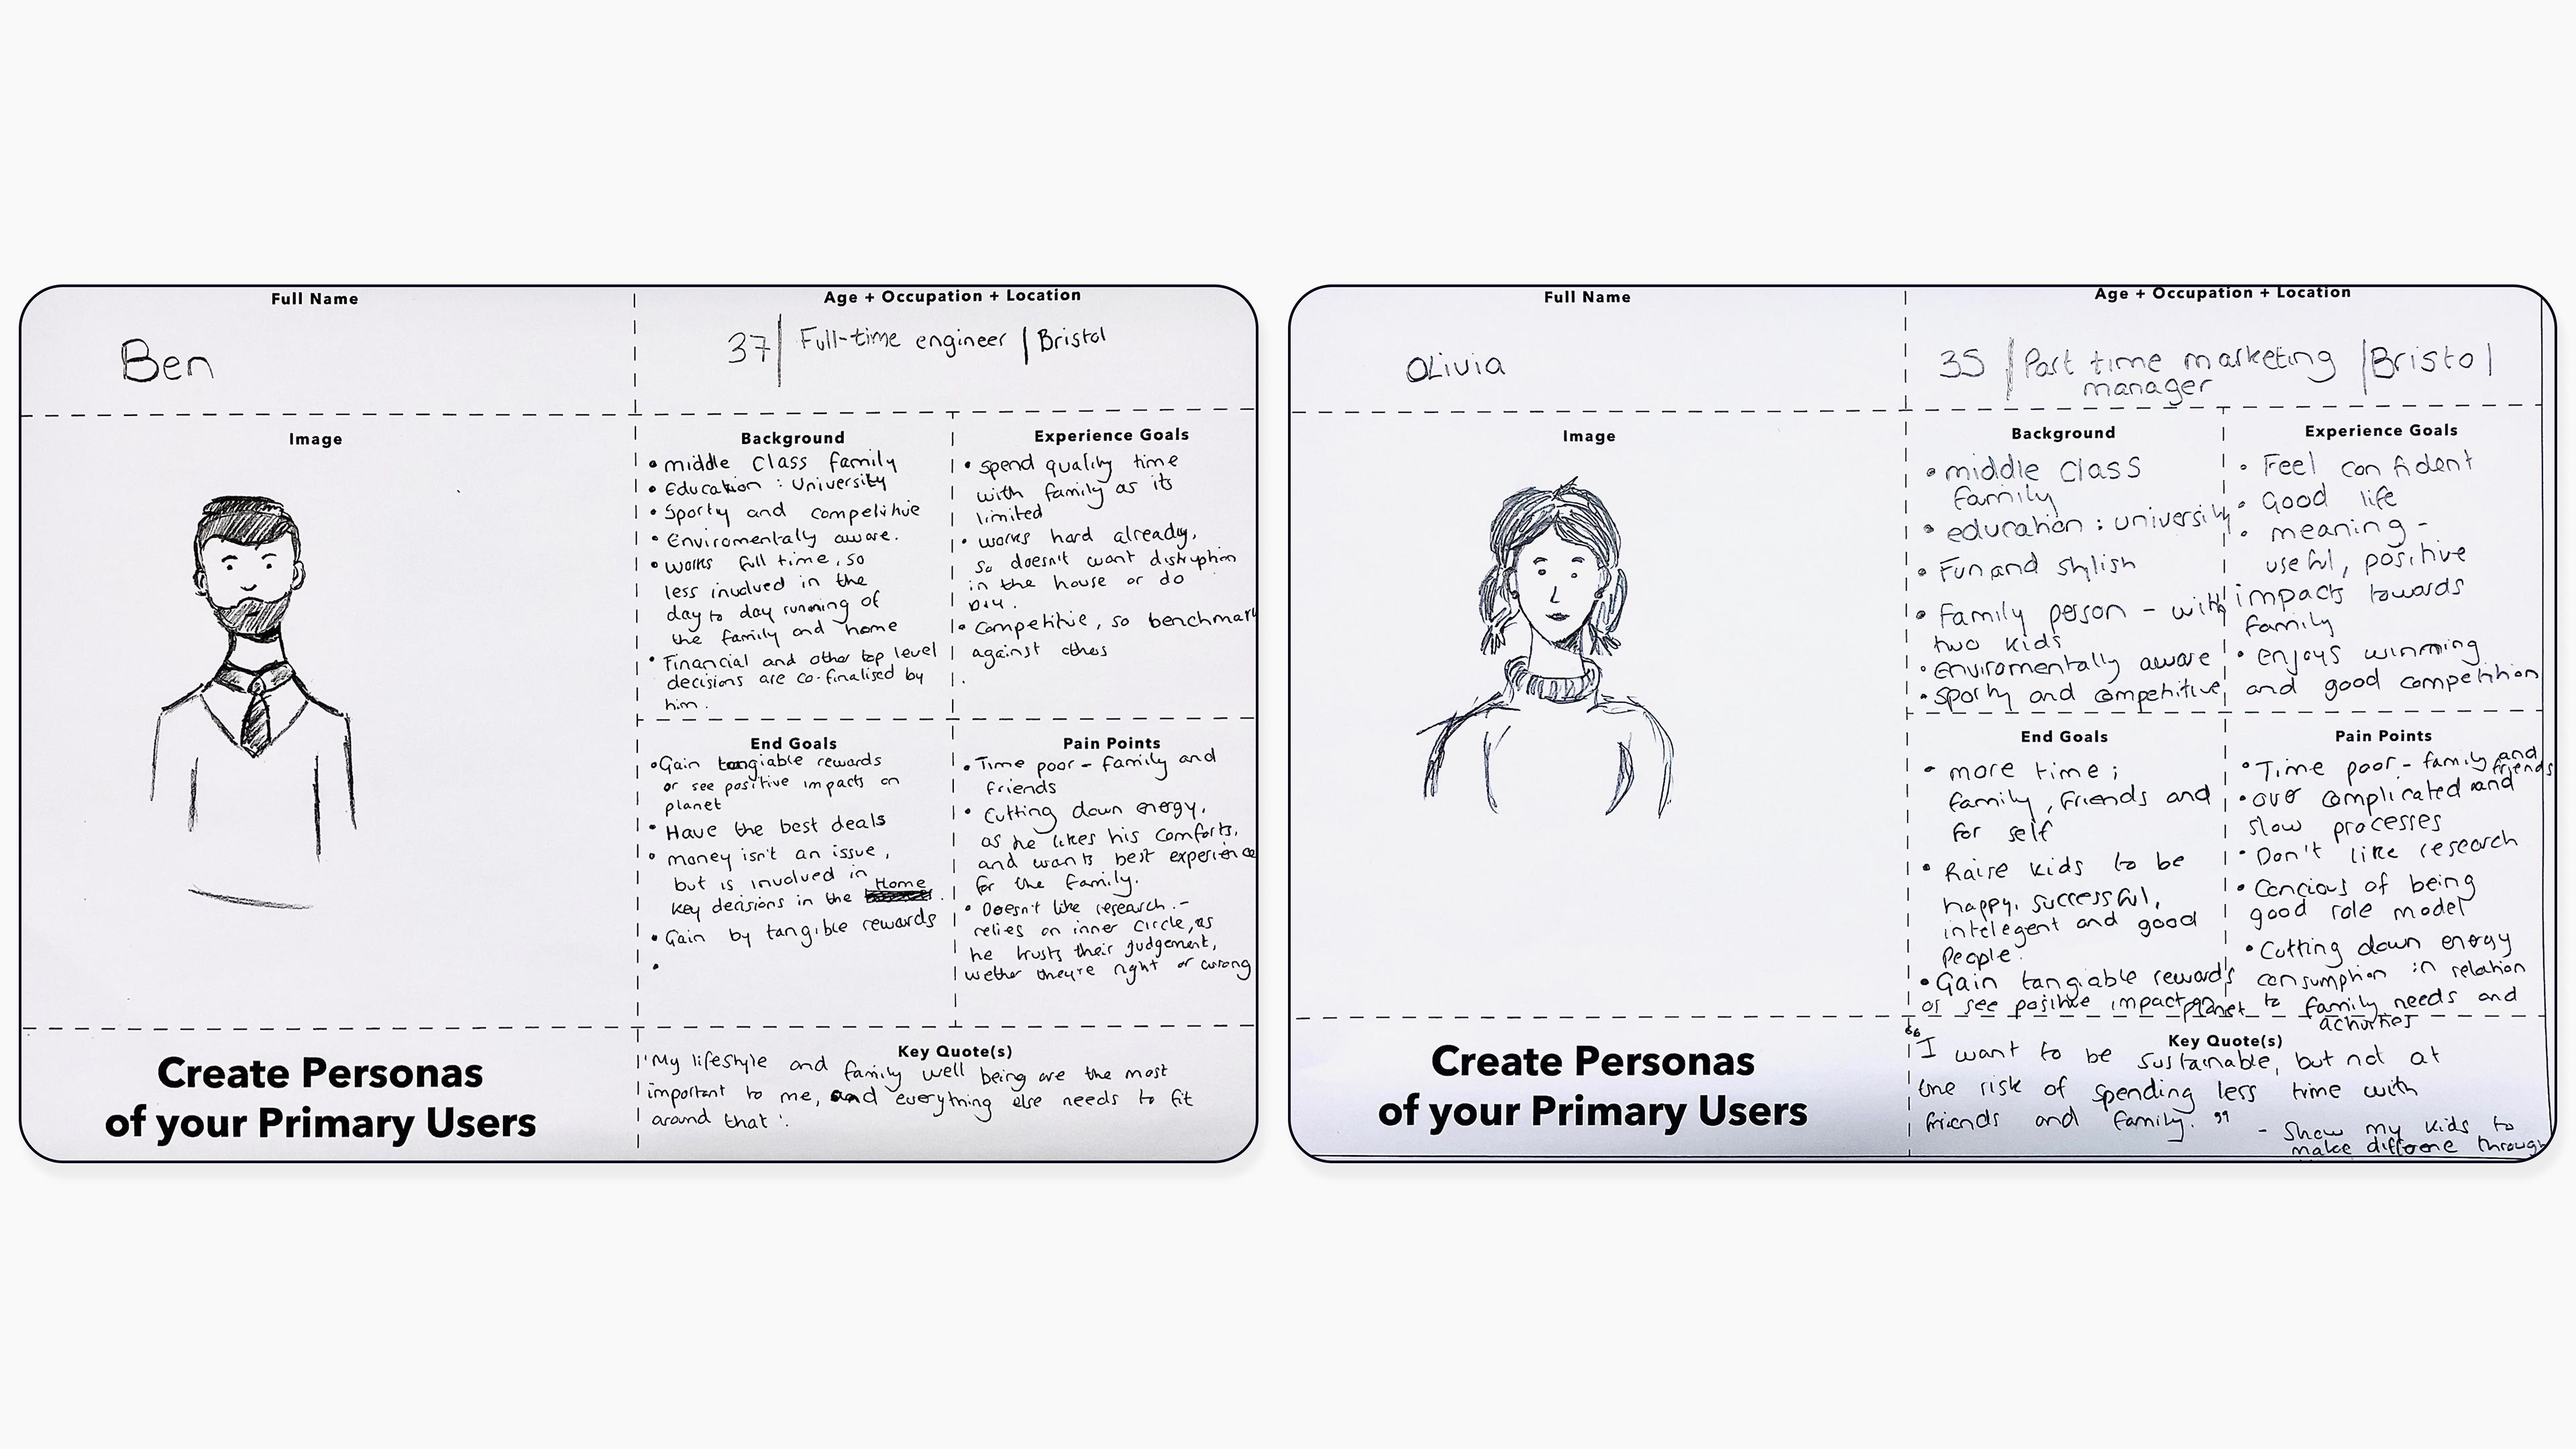 Full Name
Ben
Age + Occupation + Location
37 | Full-time engineer | Bristol
Image
Background
• middle class family
• Education : University
• Sporty and competitive
• Enviromentally aware.
• works full time, so
less involved in the
day to day running of
the family and home
• Financial and other top level
decisions are co-finalised by
him.
Experience Goals
• spend quality time
with family as its
limited
• works hard already,
so doesn't want distruption
in the house or do
DIY.
• Competitive, so benchmark
against others
.
End Goals
• Gain tangiable rewards
or see positive impacts on
planet
• Have the best deals
• money isn't an issue,
but is involved in
key decisions in the Home.
• Gain by tangible rewards
•
Pain Points
• Time poor - family and
friends
• Cutting down energy,
as he likes his comforts,
and wants best experience
for the family.
• Doesn't like research. -
relies on inner circle, as
he trusts their judgement,
wether theyre right or wrong
Create Personas
of your Primary Users
Key Quote(s)
'My lifestyle and family well being are the most
important to me, and everything else needs to fit
around that'.
Full Name
Olivia
Age + Occupation + Location
35 | Part time marketing | Bristol
manager
Image
Background
• middle class
family
• education : university
• Fun and stylish
• Family person - with
two kids
• enviromentally aware
• sporty and competitive
Experience Goals
• Feel confident
• Good life
• meaning -
useful, positive
impacts towards
family
• enjoys winning
and good competition
End Goals
• more time ;
family, friends and
for self
• Raise kids to be
happy, successful,
intelegent and good
people.
• Gain tangiable rewards
or see positive impact on planet
Pain Points
• Time poor - family and
friends
• over complicated and
slow processes
• Don't like research
• Concious of being
good role model
• Cutting down energy
consumption in relation
to family needs and
activities
Create Personas
of your Primary Users
Key Quote(s)
“I want to be sustainable, but not at
the risk of spending less time with
friends and family.”
- Show my kids to
make through